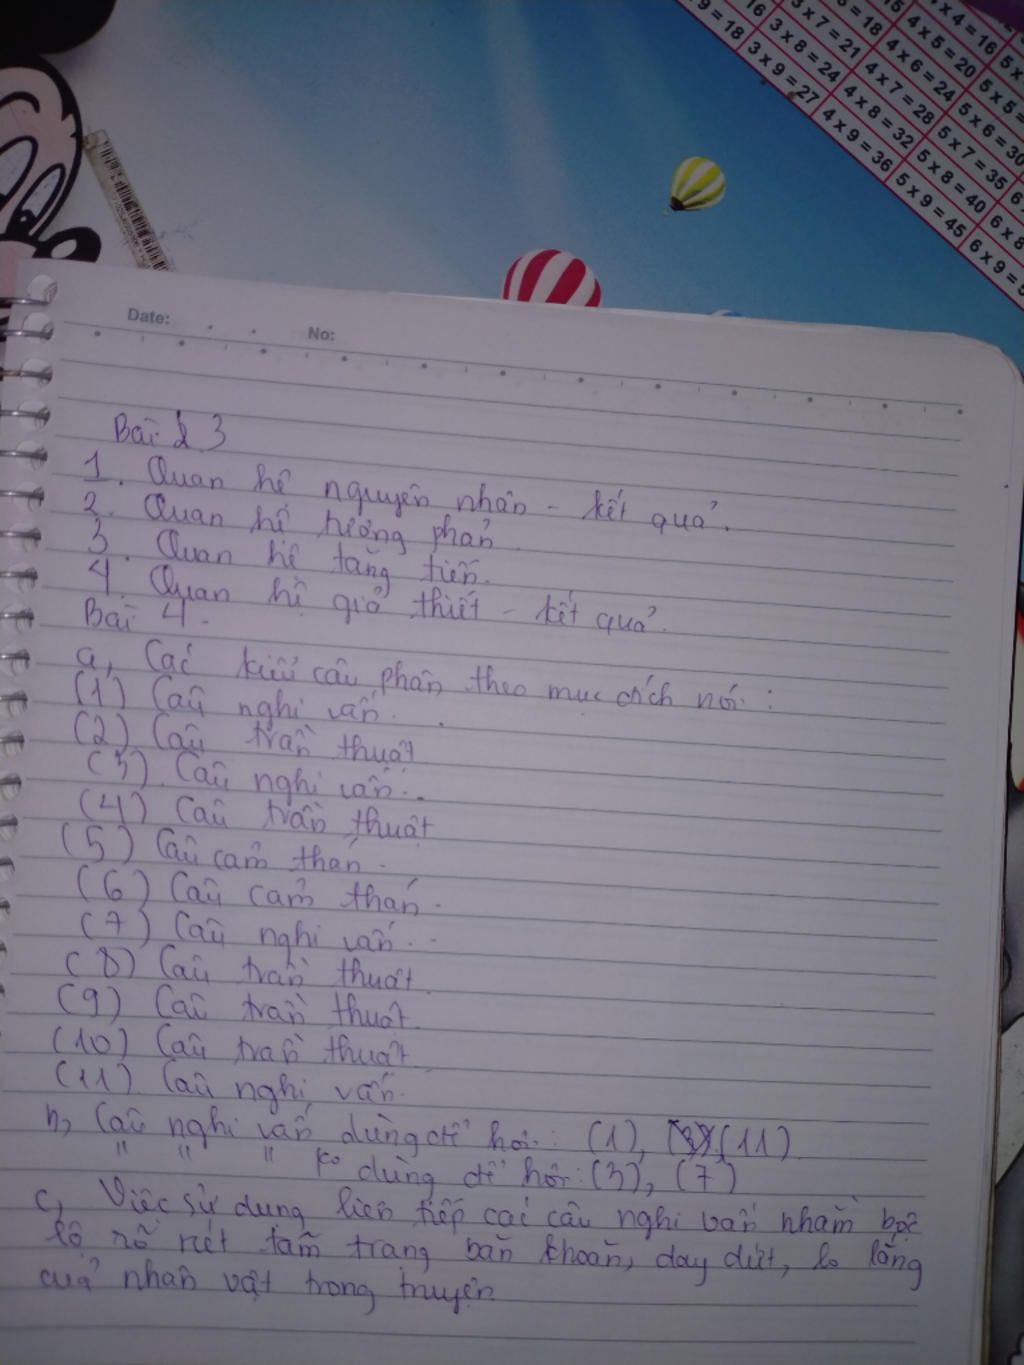 9 = 18
3 x 7 = 21
3 x 8 = 24
3 x 9 = 27
= 18
4 x 4 = 16
4 x 5 = 20
4 x 6 = 24
4 x 7 = 28
4 x 8 = 32
4 x 9 = 36
5 x 5 =
5 x 6 = 30
5 x 7 = 35
5 x 8 = 40
5 x 9 = 45
6 x 8
6 x 9 = 5
Date:
No:
Bài 3
1. Quan hệ nguyên nhân - kết quả.
2. Quan hệ tương phản
3. Quan hệ tăng tiến.
4. Quan hệ giả thiết - kết quả.
Bài 4.
a, Các kiểu câu phân theo mục đích nói:
(1) Câu nghi vấn.
(2) Câu trần thuật
(3) Câu nghi vấn.
(4) Câu trần thuật
(5) Câu cảm thán.
(6) Câu cảm thán.
(7) Câu nghi vấn.
(8) Câu trần thuật
(9) Câu trần thuật.
(10) Câu trần thuật
(11) Câu nghi vấn.
b, Câu nghi vấn dùng để hỏi: (1), (11)
" " " ko dùng để hỏi: (3), (7)
c, Việc sử dụng liên tiếp các câu nghi vấn nhằm bộc
lộ rõ nét tâm trạng băn khoăn, day dứt, lo lắng
của nhân vật trong truyện